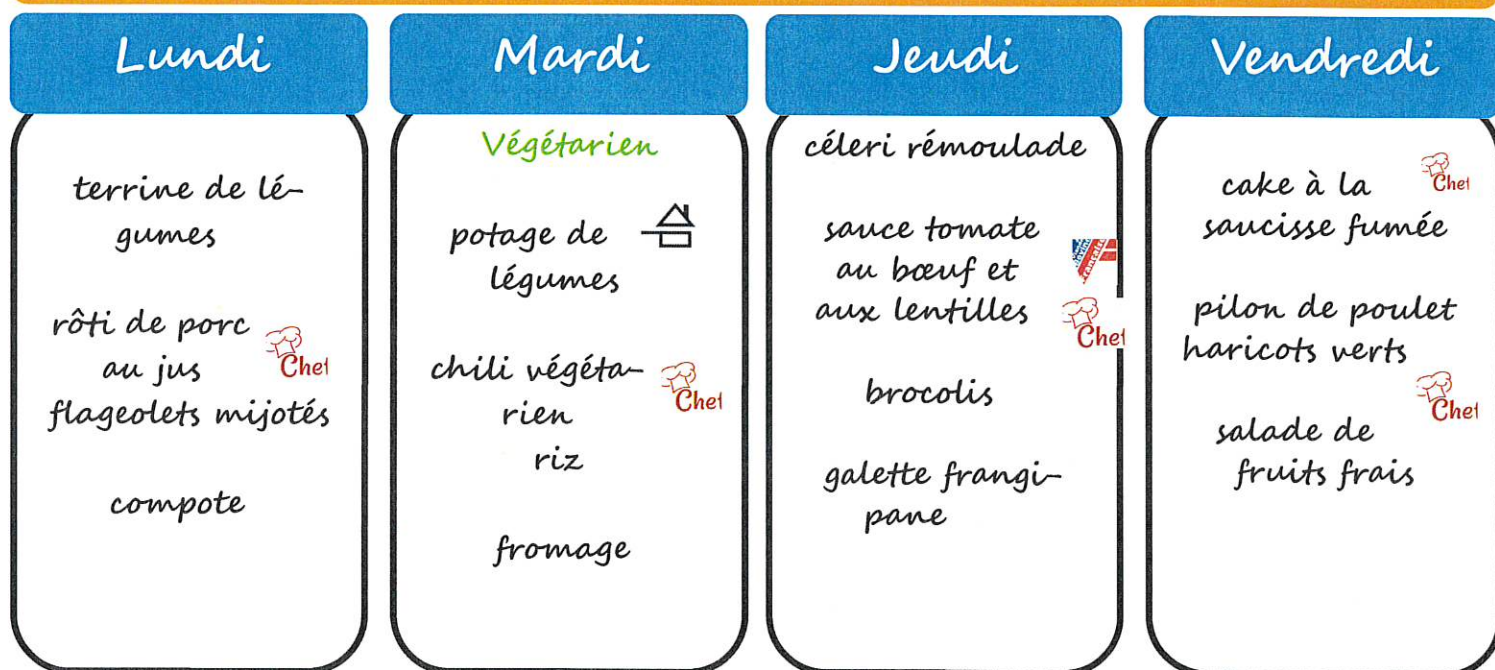 Lundi
terrine de lé-
gumes
rôti de porc
au jus
Chef
flageolets mijotés
compote
Mardi
Végétarien
potage de
légumes
chili végéta-
rien
Chef
riz
fromage
Jeudi
céleri rémoulade
sauce tomate
au bœuf et
aux lentilles
Chef
brocolis
galette frangi-
pane
Vendredi
cake à la
Chef
saucisse fumée
pilon de poulet
haricots verts
Chef
salade de
fruits frais